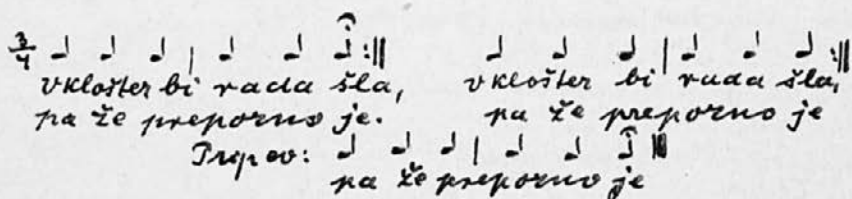 3/4
vklošter bi rada šla, vklošter bi rada šla,
pa že preporno je. pa že preporno je
Pripev:
pa že preporno je